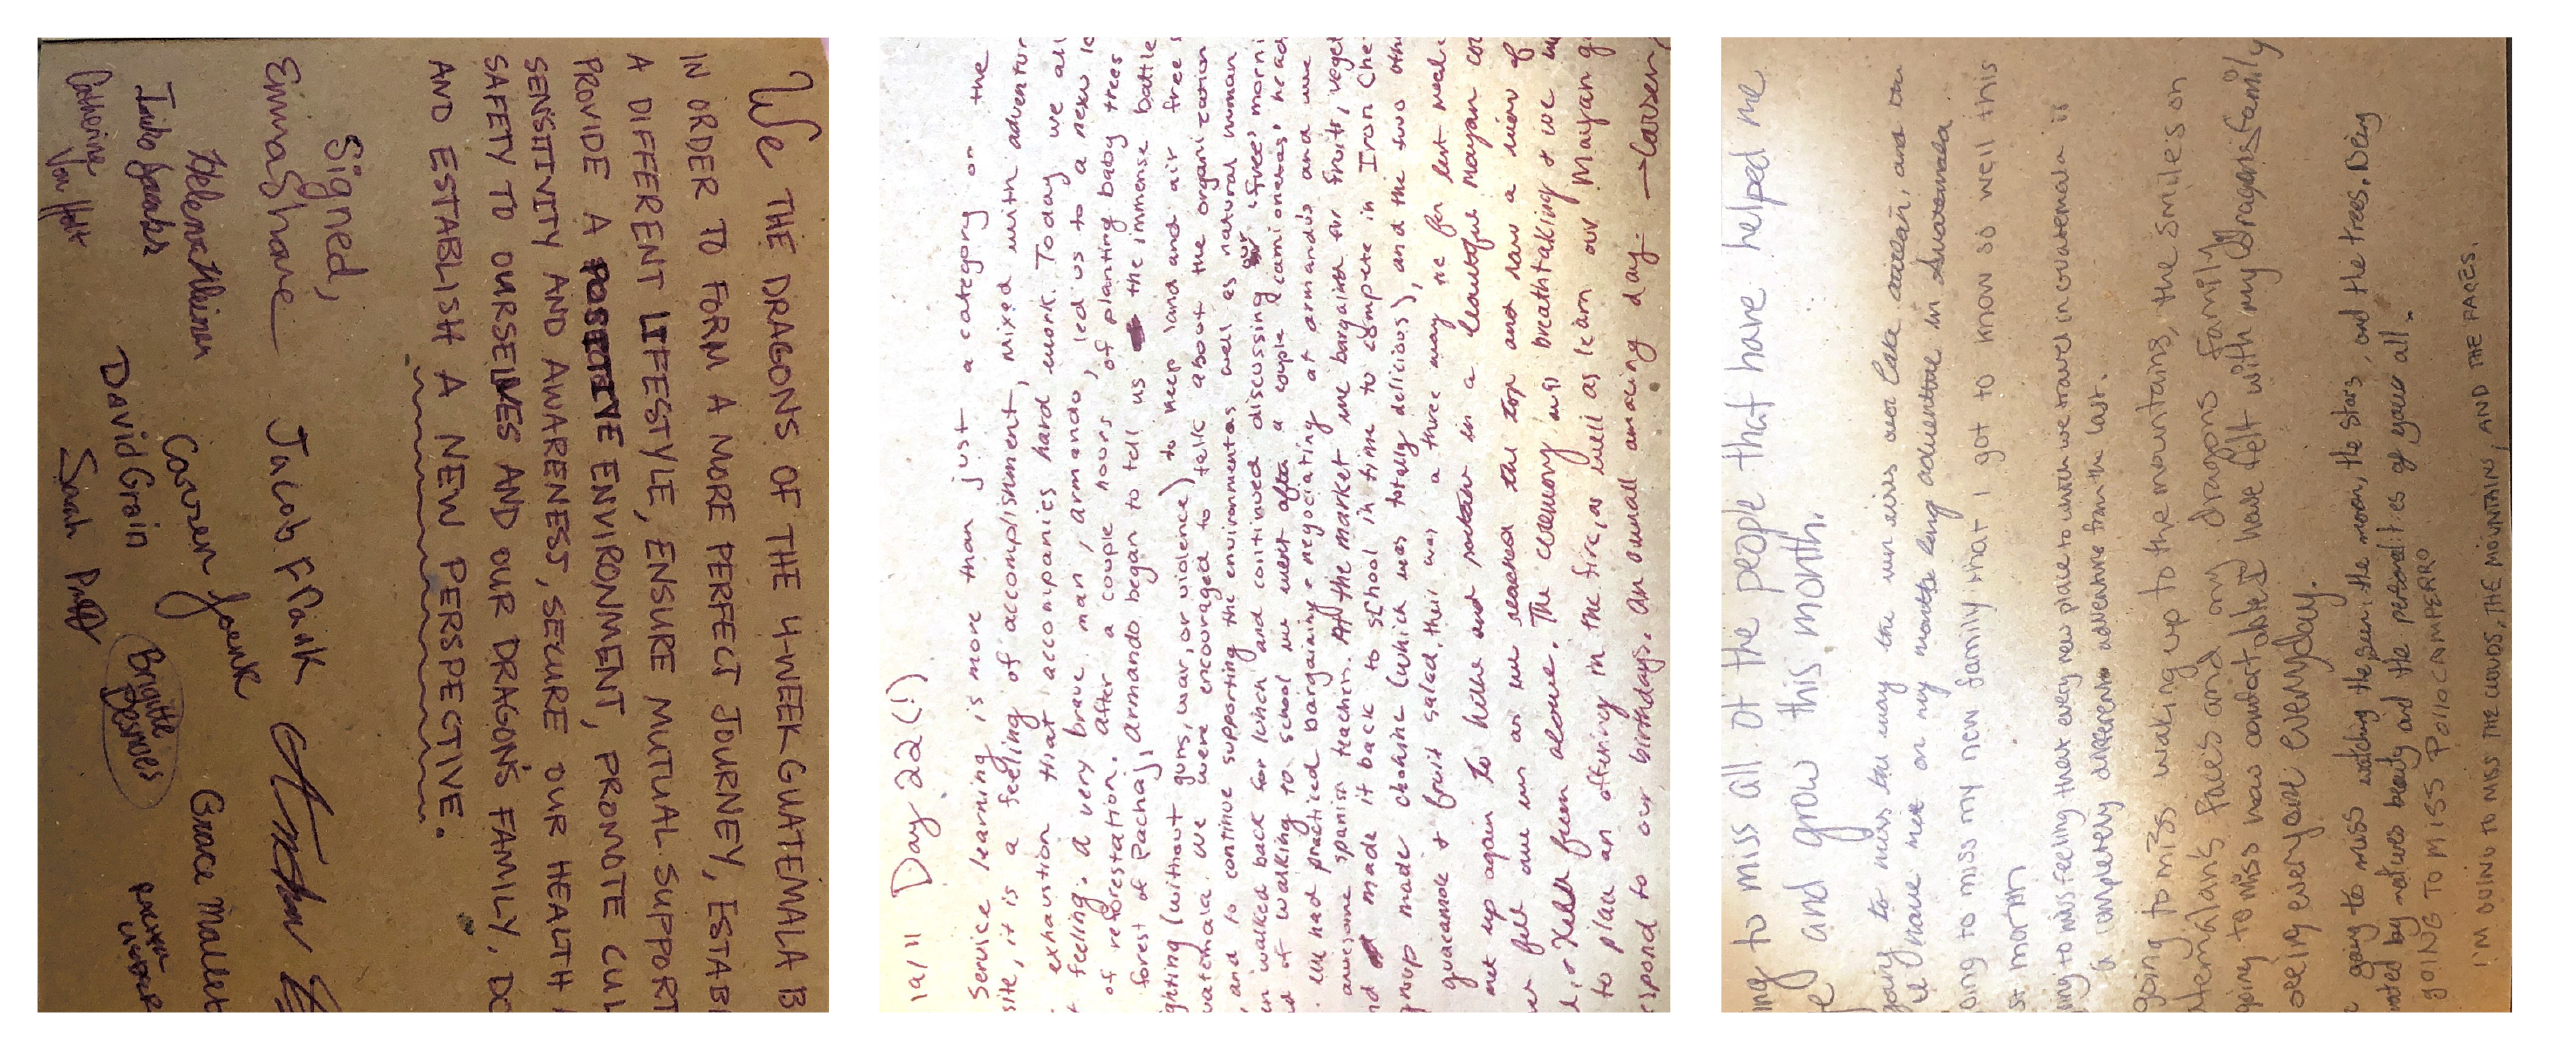 We THE DRAGONS OF THE 4-WEEK GUATEMALA B
IN ORDER TO FORM A MORE PERFECT JOURNEY, ESTAB
A DIFFERENT LIFESTYLE, ENSURE MUTUAL SUPPORT
PROVIDE A POSETIVE ENVIRONMENT, PROMOTE CUL
SENSITIVITY AND AWARENESS, SECURE OUR HEALTH
SAFETY TO OURSELVES AND OUR DRAGONS FAMILY, DO
AND ESTABLISH A NEW PERSPECTIVE.
Signed,
Emma Shore Jacob Frank
Helena
Carsen Grace Mallett
David Grain Brigitte Desnoes
Catherine Sarah
Day 22(!)
Service learning is more than just a category on the
site, it is a feeling of accomplishment, mixed with adventur
exhaustion that accompanies hard work. Today we all
feeling. A very brave man, armando, led us to a new
of reforestation. After a couple hours of planting baby trees
forest of Pachaj, armando began to tell us the immense battle
ghting (without guns, war, or violence) to keep land and air free
we were encouraged to talk about the organization
and to continue supporting the environment as well as natural human
en walked back for lunch and continued discussing our trees morni
d of walking to school we went after a couple camionetas, head
we had practiced bargaining & negociating at armandos and we
awesome spanish teacher. At the market we bargained for fruits, veget
nd made it back to school in time to compete in Iron Che
group made chokine (which was totally delicious), and the two oth
guacamole & fruit salad, their was a three way tie for best meal.
met up again to hike and in a beautiful mayan
fell over us as we reached the top and saw a view of
above. The ceremony was breathtaking & we
to place an offering in the fire, as well as learn our Mayan
espond to our birthdays. An overall amazing day. → Carsen
ng to miss all of the people that have helped me
and grow this month.
going to miss the way the sun rises over Lake
on my month long adventure in Guatemala
oing to miss my new family that I got to know so well this
st month
ing to miss feeling that every new place to which we travel in Guatemala is
a completely different adventure from the last.
going to miss waking up to the mountains, the smiles on
temalans faces and my dragons family
going to miss how comfortable I have felt with my Dragons family
seeing everyone everyday.
going to miss watching the moon, the stars, and the trees. Being
by natures beauty and the personalities of you all.
GOING TO MISS POLLO CAMPERRO
I'M GOING TO MISS THE CLOUDS, THE MOUNTAINS, AND THE FACES.